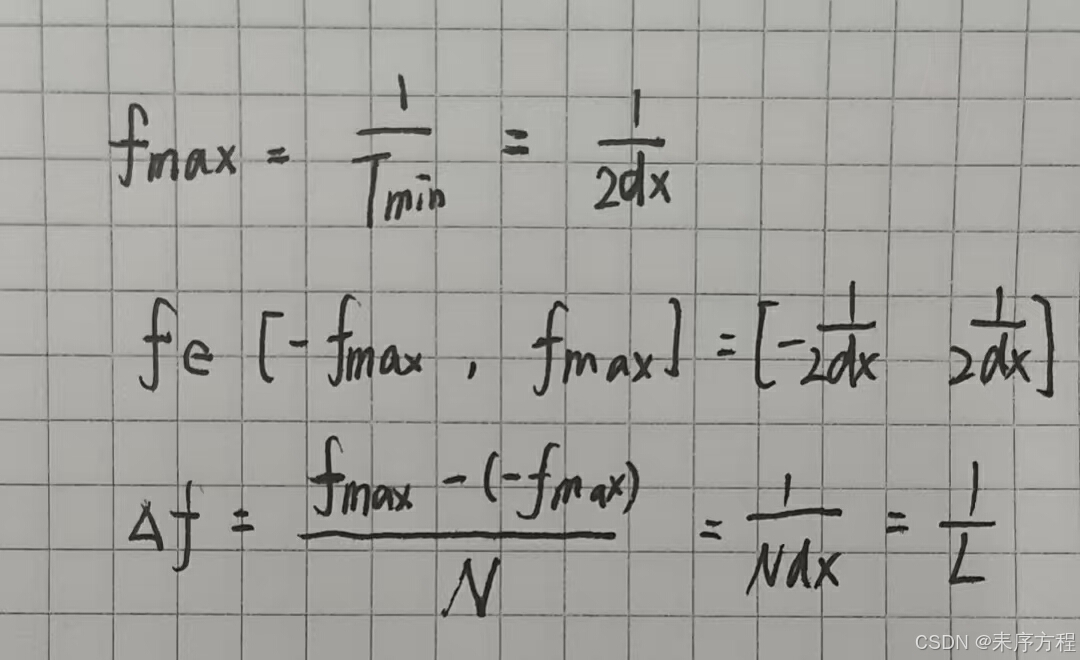 fmax = 1/Tmin = 1/2dx
f∈ [-fmax , fmax] = [-1/2dx 1/2dx]
Δf = fmax -(-fmax)/N = 1/Ndx = 1/L
CSDN @耒序方程